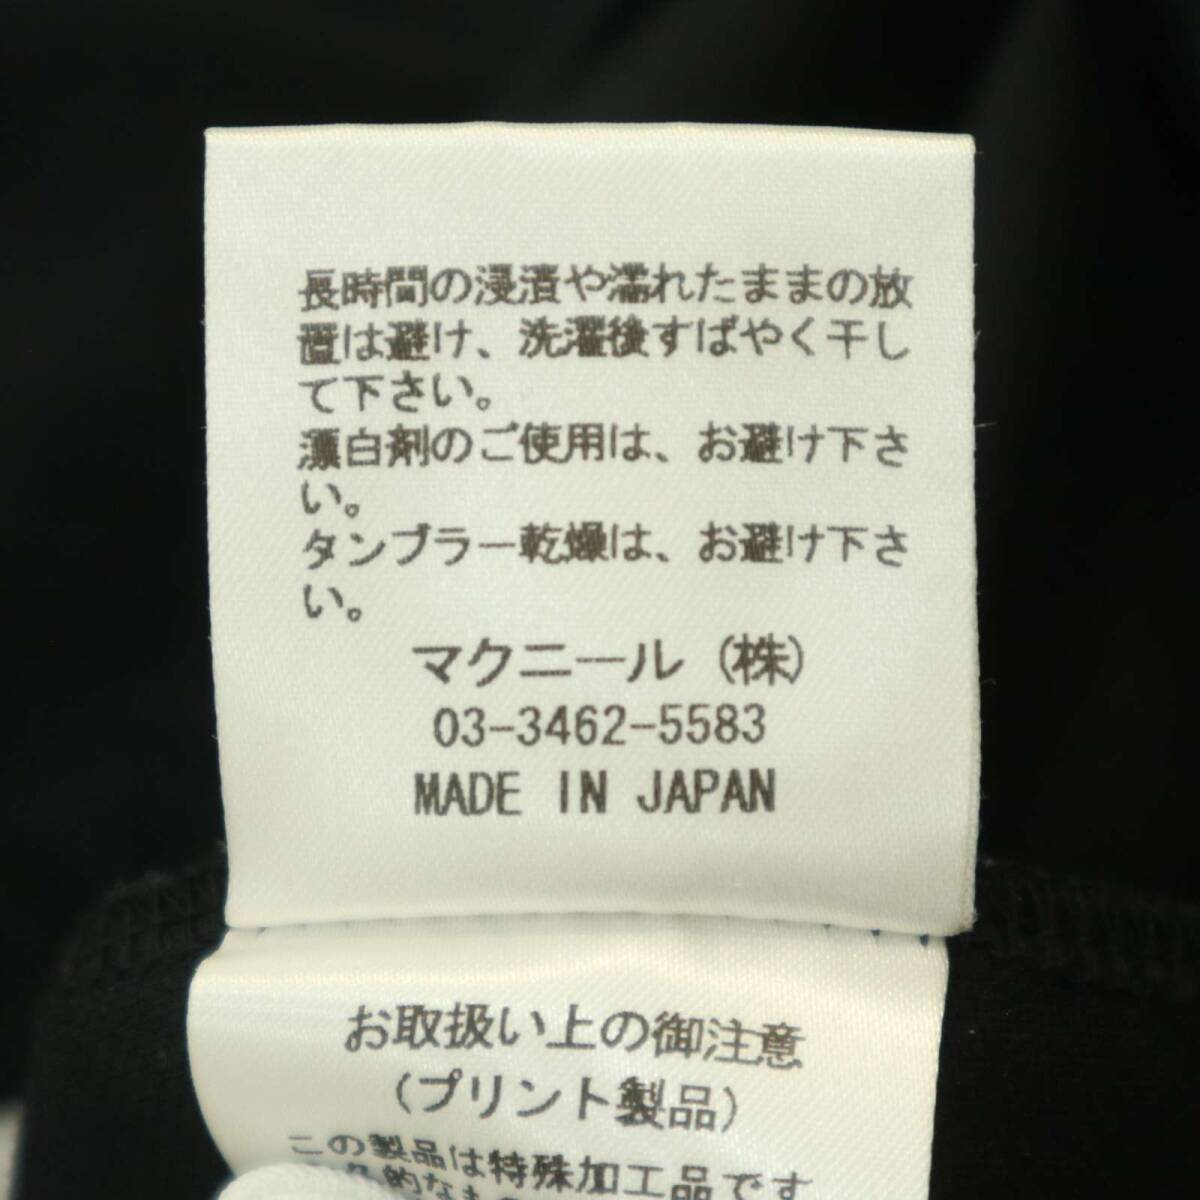 長時間の浸漬や濡れたままの放
置は避け、洗濯後すばやく干し
て下さい。
漂白剤のご使用は、お避け下さ
い。
タンブラー乾燥は、お避け下さ
い。
マクニール（株）
03-3462-5583
MADE IN JAPAN
お取扱い上の御注意
（プリント製品）
この製品は特殊加工品です